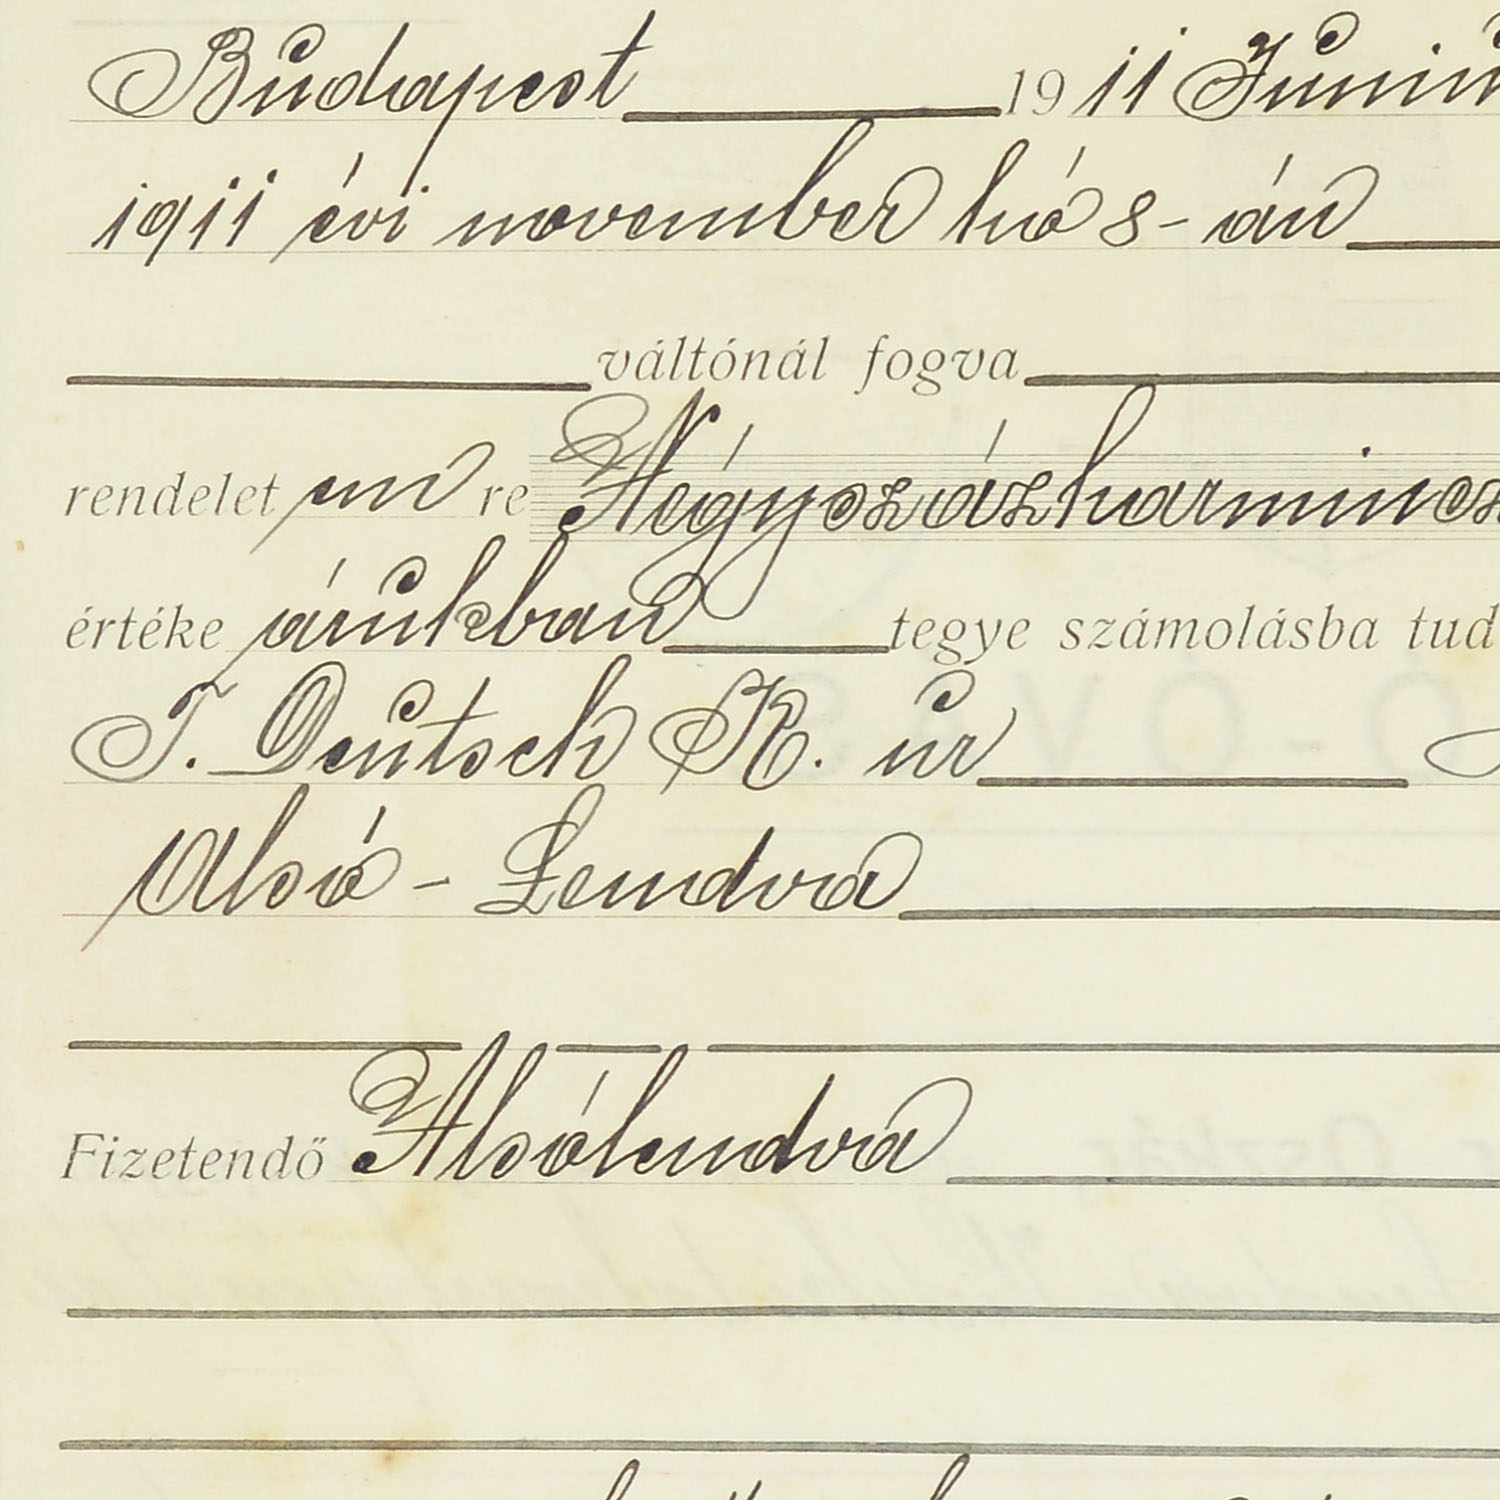 Budapest 1911
1911 évi november hó 8-án
váltónál fogva
rendelet em re Négyszázharmincz
értéke árukban tegye számolásba
T. Deutsch K. úr
Alsó-Lendva
Fizetendő Alsólendva